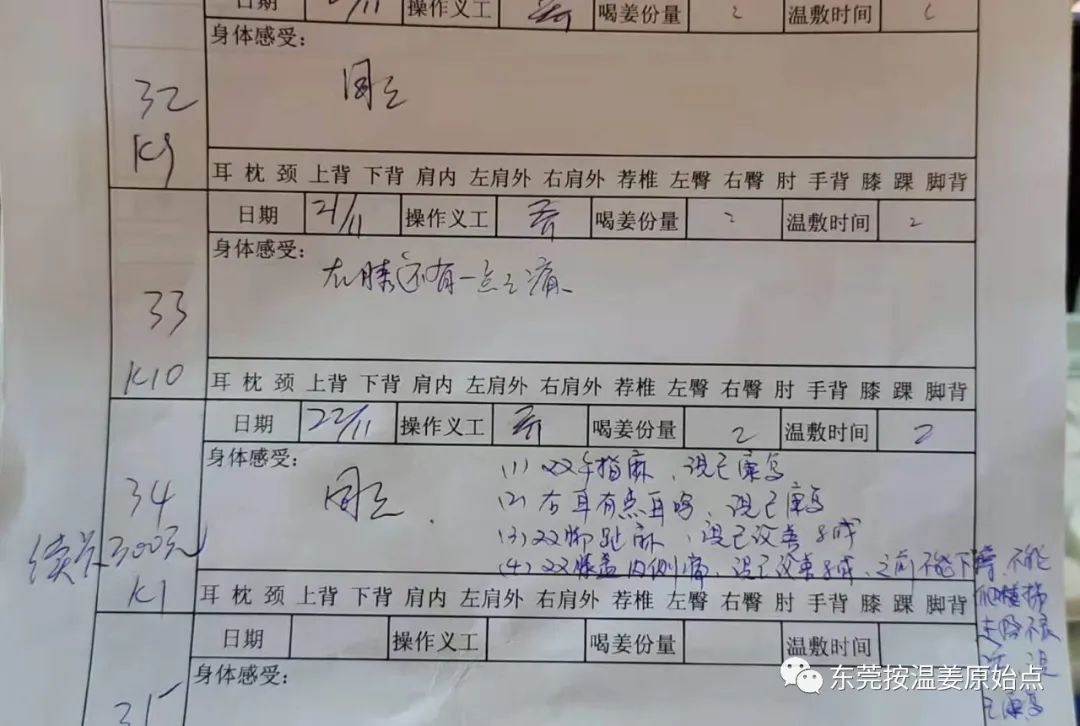 日期 操作义工 喝姜份量 2 温敷时间
身体感受:
32
同上
K9
耳 枕 颈 上背 下背 肩内 左肩外 右肩外 荐椎 左臀 右臀 肘 手背 膝 踝 脚背
日期 21/11 操作义工 喝姜份量 2 温敷时间 2
身体感受:
左膝还有一点之痛
33
K10
耳 枕 颈 上背 下背 肩内 左肩外 右肩外 荐椎 左臀 右臀 肘 手背 膝 踝 脚背
日期 22/11 操作义工 喝姜份量 2 温敷时间 2
身体感受:
34
同上.
(1) 双手指麻、现已康复
(2) 右耳有点耳鸣、现已康复
(3) 双脚趾麻、现已改善8成
(4) 双膝盖内侧痛、现已改善8成、之前不能下蹲、不能
走路不
已康复
300元
K1
耳 枕 颈 上背 下背 肩内 左肩外 右肩外 荐椎 左臀 右臀 肘 手背 膝 踝 脚背
日期 操作义工 喝姜份量 温敷时间
身体感受:
35
东莞按温姜原始点